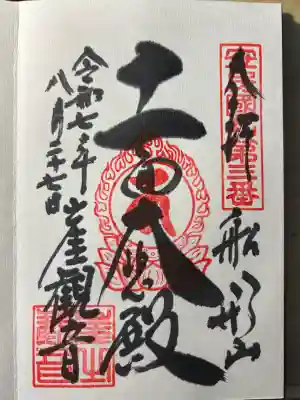 安房國札第三番
奉拝
船形山
十一面大悲殿
令和七年
八月二十七日
崖觀音